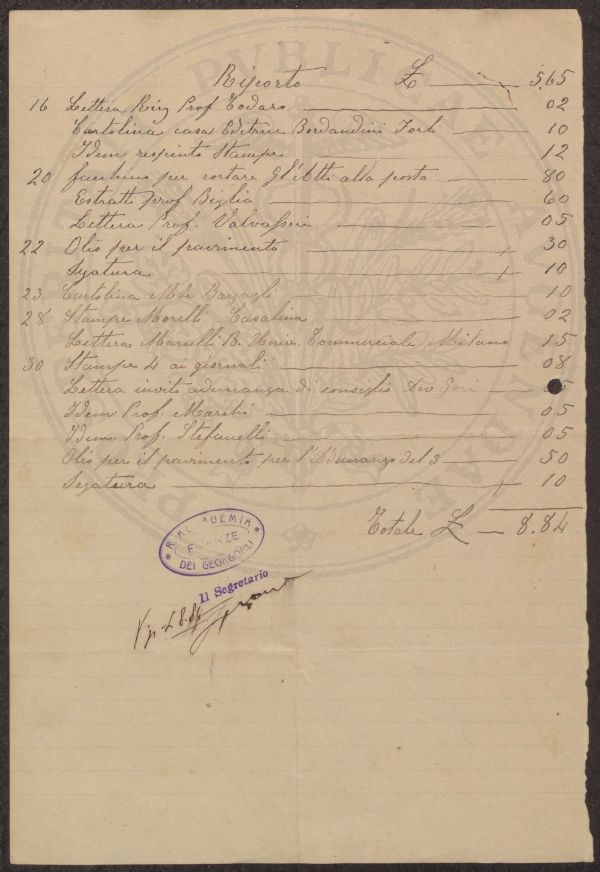 Riporto £ 5.65
16 Lettera Ring Prof Todaro 02
Cartolina casa Editrice Bordandini Forlì 10
Idem respinto Stampe 12
20 facchino per portare Gl'Atti alla posta 80
Estratti prof Biglia 60
Lettera Prof. 05
22 Olio per il pavimento 30
Segatura 10
23 Cartolina 10
28 Stampe Morelli Casalina 02
Lettera B. Univ. Commerciale Milano 15
30 Stampe 4 ai giornali 08
Lettera invito adunanza di consiglio 5
Idem Prof. 05
Idem Prof. Stefanelli 05
Olio per il pavimento per l'Adunanza del 3 50
Segatura 10
Totale £ 8.84
R. ACCADEMIA
FIRENZE
DEI GEORGOFILI
Il Segretario
£ 8.84
PUBLICAE